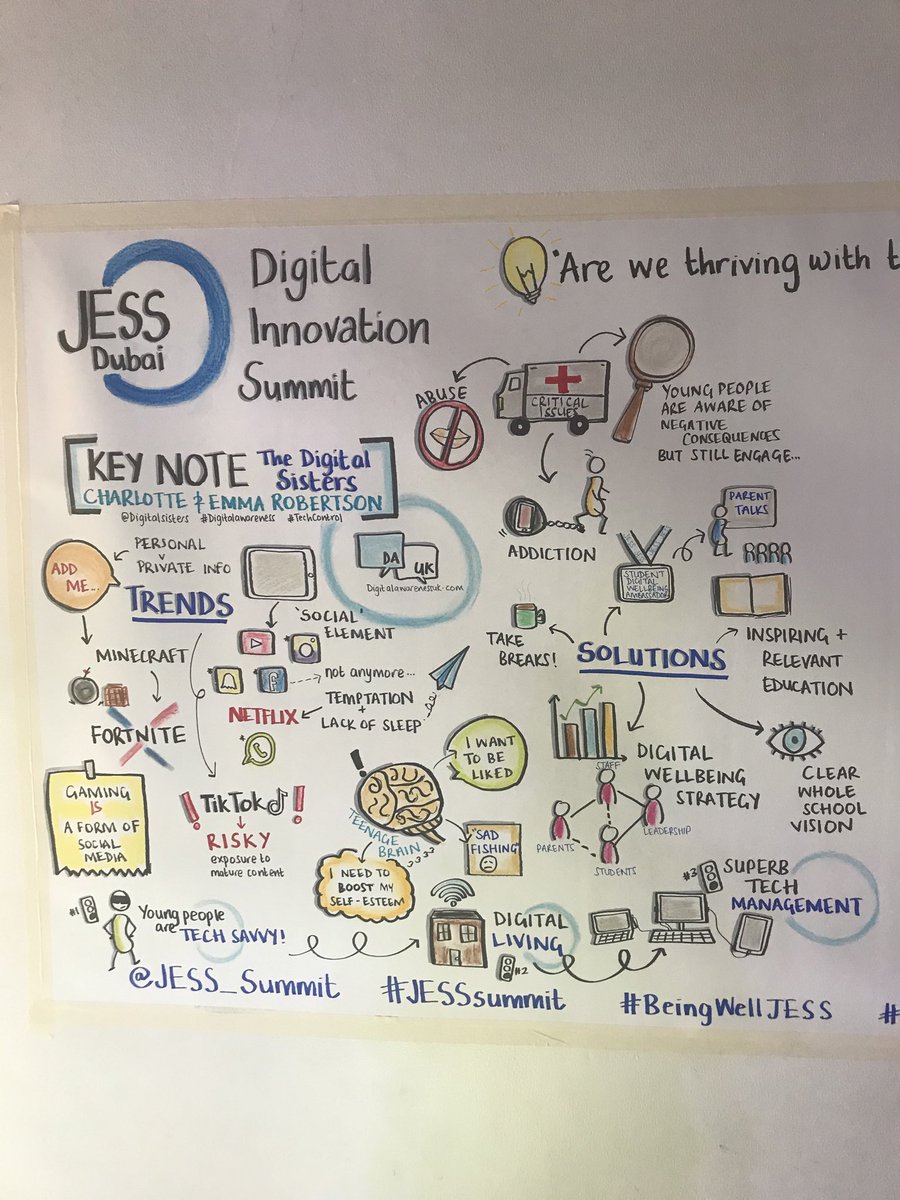 JESS
Dubai
Digital
Innovation
Summit
"Are we thriving with t
ABUSE
CRITICAL
ISSUES
YOUNG PEOPLE
ARE AWARE OF
NEGATIVE
CONSEQUENCES
BUT STILL ENGAGE...
KEY NOTE The Digital
Sisters
CHARLOTTE & EMMA ROBERTSON
@Digitalsisters #Digitalawareness #TechControl
ADDICTION
PARENT
TALKS
STUDENT
DIGITAL
WELLBEING
AMBASSADOR
DA
UK
Digitalawarenessuk.com
ADD
ME...
PERSONAL
v
PRIVATE INFO
TRENDS
'SOCIAL'
ELEMENT
not anymore...
TEMPTATION
+
LACK OF SLEEP
NETFLIX
MINECRAFT
FORTNITE
TAKE
BREAKS!
SOLUTIONS
INSPIRING +
RELEVANT
EDUCATION
GAMING
IS
A FORM OF
SOCIAL
MEDIA
! TikTok !
RISKY
exposure to
mature content
!
TEENAGE
BRAIN
I WANT
TO BE
LIKED
"SAD
FISHING
I NEED TO
BOOST MY
SELF-ESTEEM
DIGITAL
WELLBEING
STRATEGY
STAFF
LEADERSHIP
PARENTS
STUDENTS
CLEAR
WHOLE
SCHOOL
VISION
#1
Young people
are TECH SAVVY!
DIGITAL
LIVING
#2
#3
SUPERB
TECH
MANAGEMENT
@JESS_Summit #JESSsummit #BeingWellJESS #